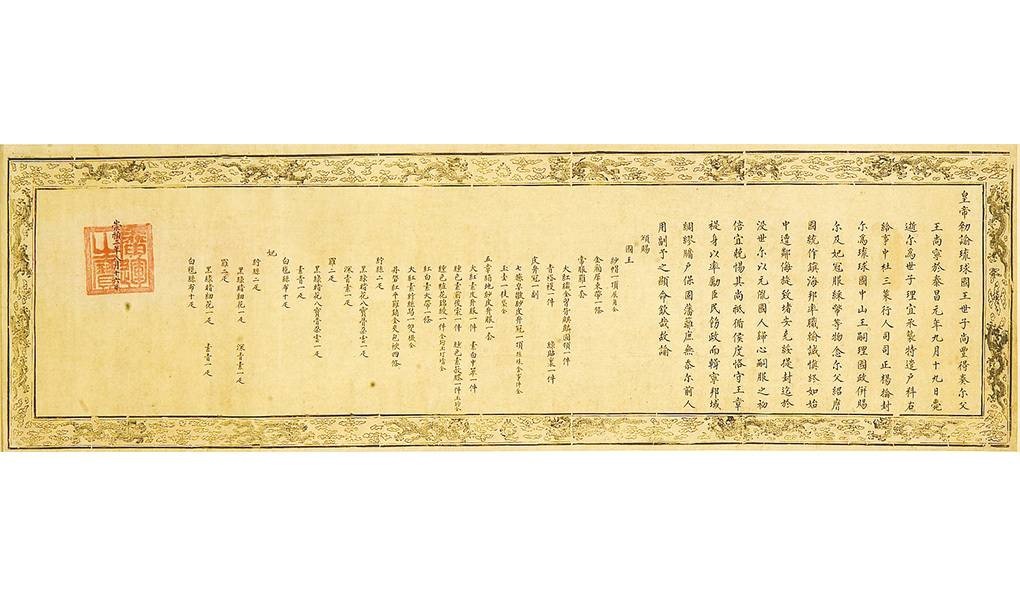 皇帝勅諭琉球國王世子尚豐得奏尔父
王尚寧於泰昌元年九月十九日薨
逝尔為世子理宜承襲特遣户科右
給事中杜三策行人司司正楊掄封
尔為琉球國中山王嗣理國政併賜
尔及妃冠服綵幣等物念尔父紹膺
國統作鎮海邦率職輸誠慎終如始
中遭鄰侮旋致堵安克綏提封迄於
没世尔以元胤國人歸心嗣服之初
倍宜兢惕其尚祗循侯度恪守王章
褆身以率勵臣民飭政而輯寧邦域
綢繆牖户保固藩籬庶無忝尔前人
用副予之顯命欽哉故諭
頒賜
國王
紗帽一頂展角全
金廂犀束帶一條
常服羅一套
大紅織金胷背麒麟圓領一件
青褡𧞤一件 綠貼裏一件
皮弁冠一副
七旒皁皺紗皮弁冠一頂旒珠金事件全
玉圭一枝袋全
五章絹地紗皮弁服一套
大紅素皮弁服一件 素白中單一件
纁色素前後裳一件 纁色素蔽膝一件玉鈎全
纁色粧花錦綬一件金鈎玉玎璫全
紅白素大帶一條
大紅素紵絲舄一雙襪全
丹礬紅平羅銷金夾包袱四條
紵絲二疋
黑綠暗花八寶骨朵雲一疋
深青素一疋
羅二疋
黑綠暗花八寶骨朵雲一疋
素青一疋
白氁絲布十疋
妃
紵絲二疋
黑綠暗細花一疋 深青素一疋
羅二疋
黑綠暗細花一疋 素青一疋
白氁絲布十疋
崇禎二年八月十六日
廣運之寶